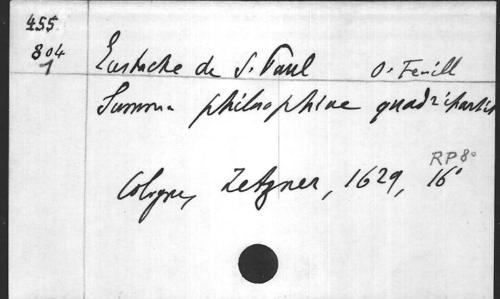 455.
804
1
Eustache de S. Paul O. Feuill
Summa philosophiae quadripartita
RP 8°
Cologne, Zetzner, 1629, 16°